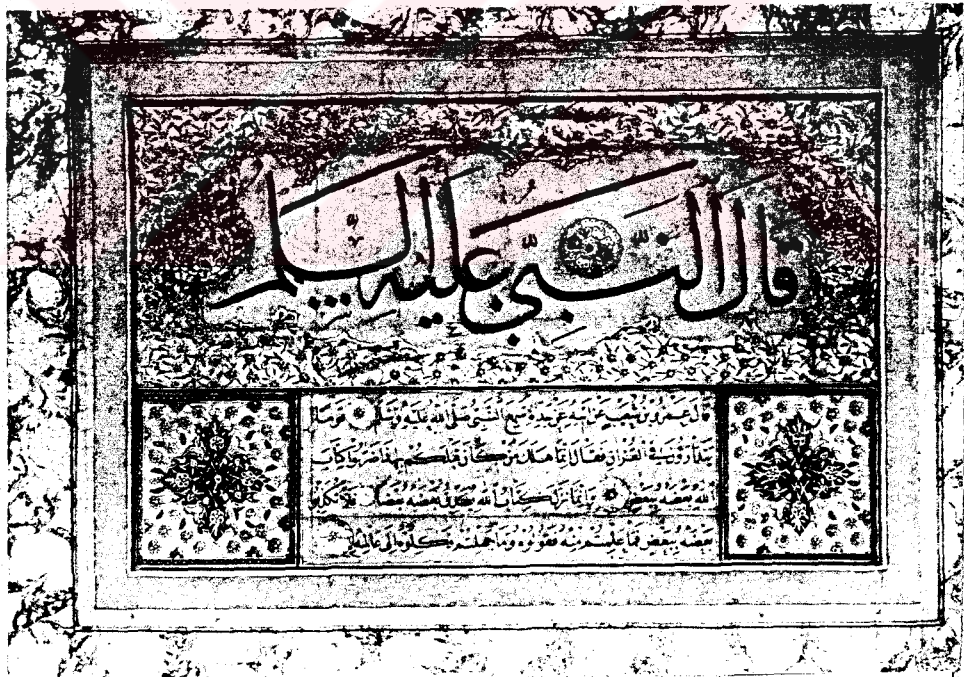 قال النبي عليه السلم
قال عمرو بن شعيب عن ابيه عن جده سمع النبي صلى الله عليه وسلم قوما
يتدارؤن في القرآن فقال انما هلك من كان قبلكم بهذا ضربوا كتاب
الله بعضه ببعض وانما نزل كتاب الله يصدق بعضه بعضا فلا تكذبوا
بعضه ببعض فما علمتم منه فقولوه وما جهلتم فكلوه الى عالمه